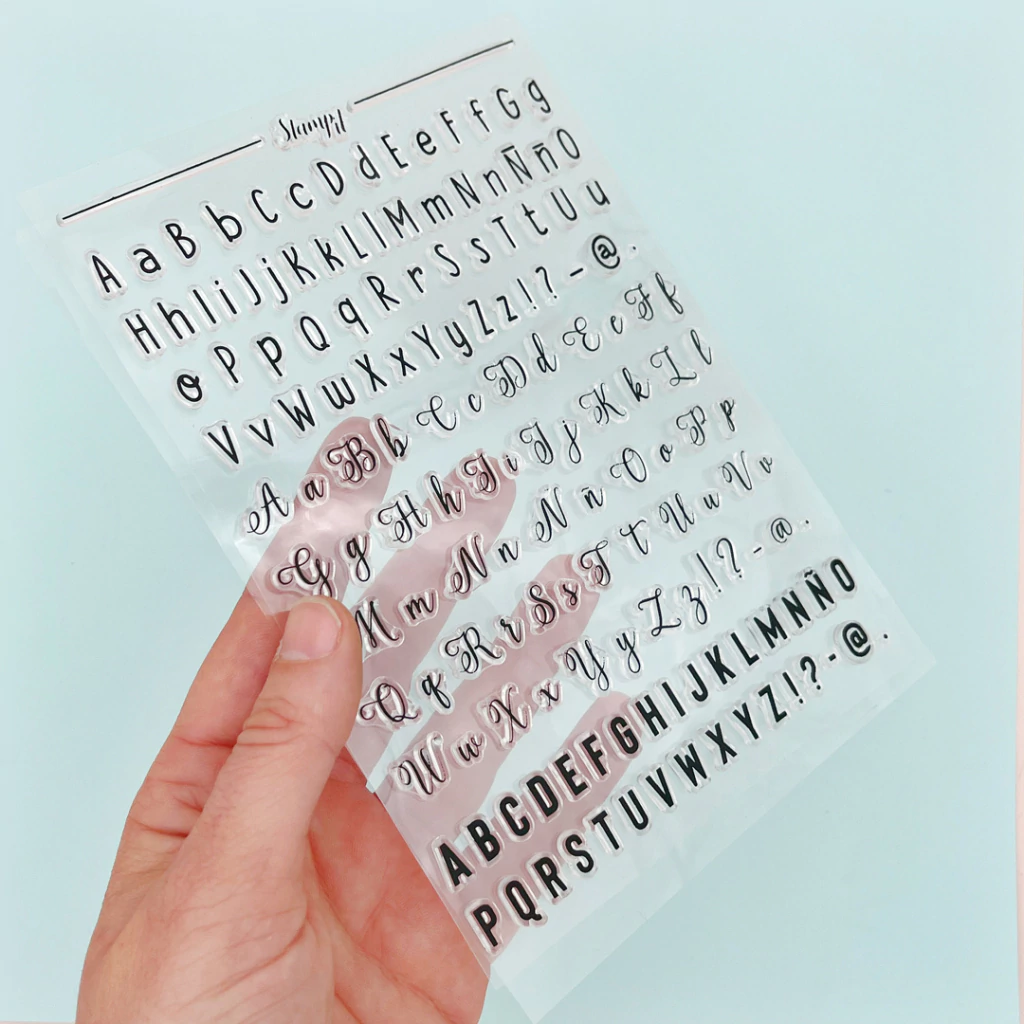 A a B b C c D d E e F f G g
H h I i J j K k L l M m N n Ñ ñ O
o P p Q q R r S s T t U u
V v W w X x Y y Z z ! ? - @ .
A a B b C c D d E e F f
G g H h I i J j K k L l
M m N n Ñ ñ O o P p
Q q R r S s T t U u V v
W w X x Y y Z z ! ? - @ .
A B C D E F G H I J K L M N Ñ O
P Q R S T U V W X Y Z ! ? - @ .